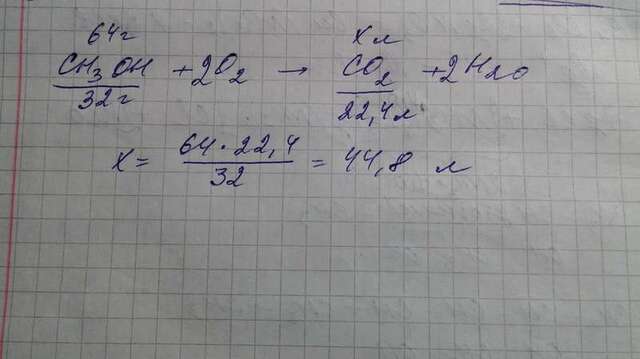 64г х л
CH3OH + 2O2 → CO2 + 2H2O
32г 22,4л
X = 64 · 22,4 / 32 = 44,8 л